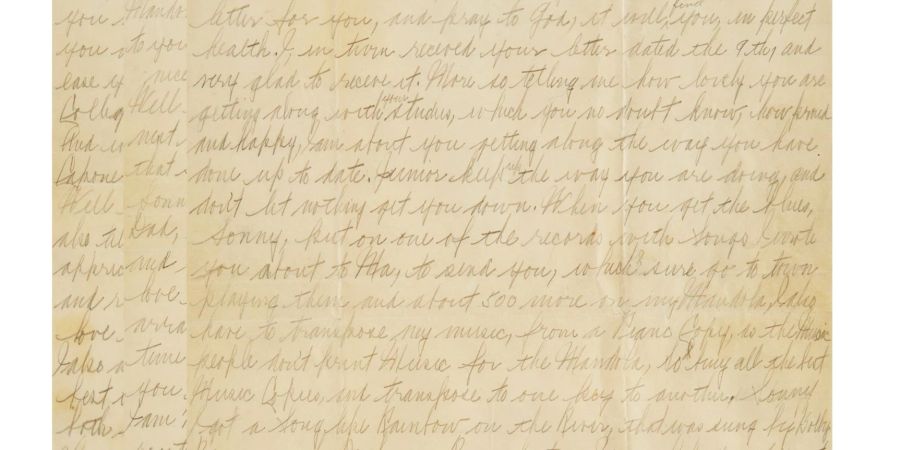 you
you
ease y
Colleg
And i
Capone
Well
also tel
apprec
and r
love
I also a
best
both
Mando
to you
nice
Well
next
that
Sonn
Dad,
and
love
arra
time
you.
I am
letter for you, and pray to God, it will find you, in perfect
health. I, in turn receved your letter dated the 9th, and
very glad to receve it. More so telling me how lovely you are
getting along with your studies, which you no doubt know, how proud
and happy, I am about you getting along the way you have
done up to date. Junior keep up the way you are doing, and
don't let nothing get you down. When you get the blues,
Sonny, put on one of the records with songs I wrote
you about to Ma, to send you, which sure go to town
playing them, and about 500 more on my Mandola, I also
have to transpose my music, from a Piano Copy, as the Music
people don't print Music for the Mandola, so I buy all the best
Music Copies, and transpose to one key to another. Sonny
I got a song like Rainbow on the River, that was sung by Bobby